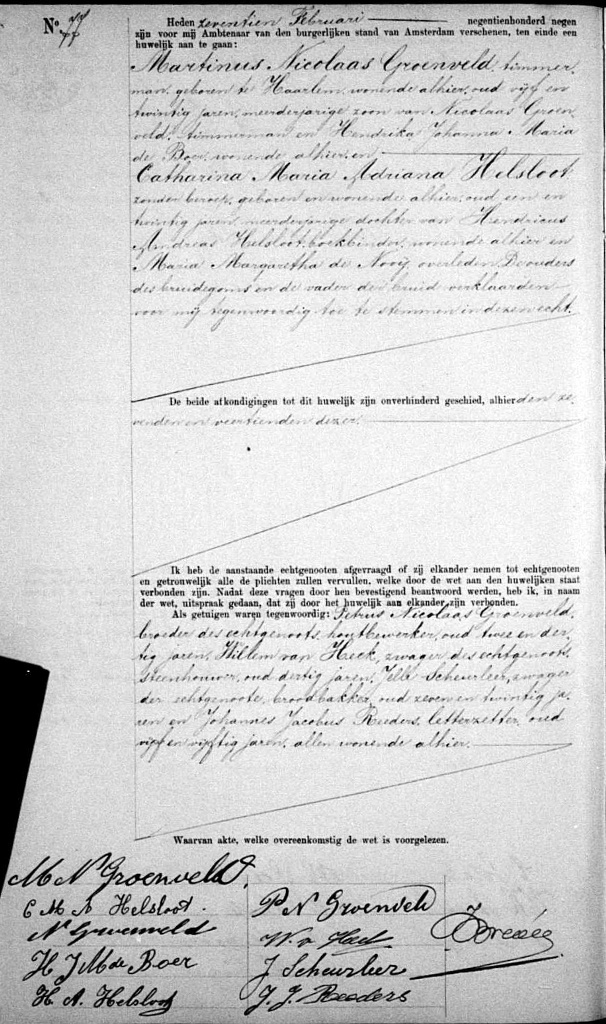 No 77
Heden zeventien Februari negentienhonderd negen
zijn voor mij Ambtenaar van den burgerlijken stand van Amsterdam verschenen, ten einde een
huwelijk aan te gaan:
Martinus Nicolaas Groenveld, timmer-
man, geboren te Haarlem, wonende alhier, oud vijf en
twintig jaren, meerderjarige zoon van Nicolaas Groen-
veld, timmerman en Hendrika Johanna Maria
de Boer, wonende alhier, en
Catharina Maria Adriana Helsloot
zonder beroep, geboren en wonende alhier, oud een en
twintig jaren, meerderjarige dochter van Hendricus
Andreas Helsloot, boekbinder, wonende alhier en
Maria Margaretha de Nooij, overleden. De ouders
des bruidegoms en de vader der bruid verklaarden
voor mij tegenwoordig toe te stemmen in dezen echt.
De beide afkondigingen tot dit huwelijk zijn onverhinderd geschied, alhier den ze-
venden en veertienden dezer.
Ik heb de aanstaande echtgenooten afgevraagd of zij elkander nemen tot echtgenooten
en getrouwelijk alle de plichten zullen vervullen, welke door de wet aan den huwelijken staat
verbonden zijn. Nadat deze vragen door hen bevestigend beantwoord werden, heb ik, in naam
der wet, uitspraak gedaan, dat zij door het huwelijk aan elkander zijn verbonden.
Als getuigen waren tegenwoordig: Petrus Nicolaas Groenveld,
broeder des echtgenoots, houtbewerker, oud twee en der-
tig jaren, Willem van Heck, zwager des echtgenoots,
steenhouwer, oud dertig jaren, Jelle Scheurleer, zwager
der echtgenoote, broodbakker, oud zeven en twintig ja-
ren en Johannes Jacobus Reeders, letterzetter, oud
vijf en vijftig jaren, allen wonende alhier.
Waarvan akte, welke overeenkomstig de wet is voorgelezen.
M N Groenveld.
C M A Helsloot.
N Groenveld
H J M de Boer
H. A. Helsloot
P N Groenveld
W. v. Heck
J Scheurleer
J. J. Reeders